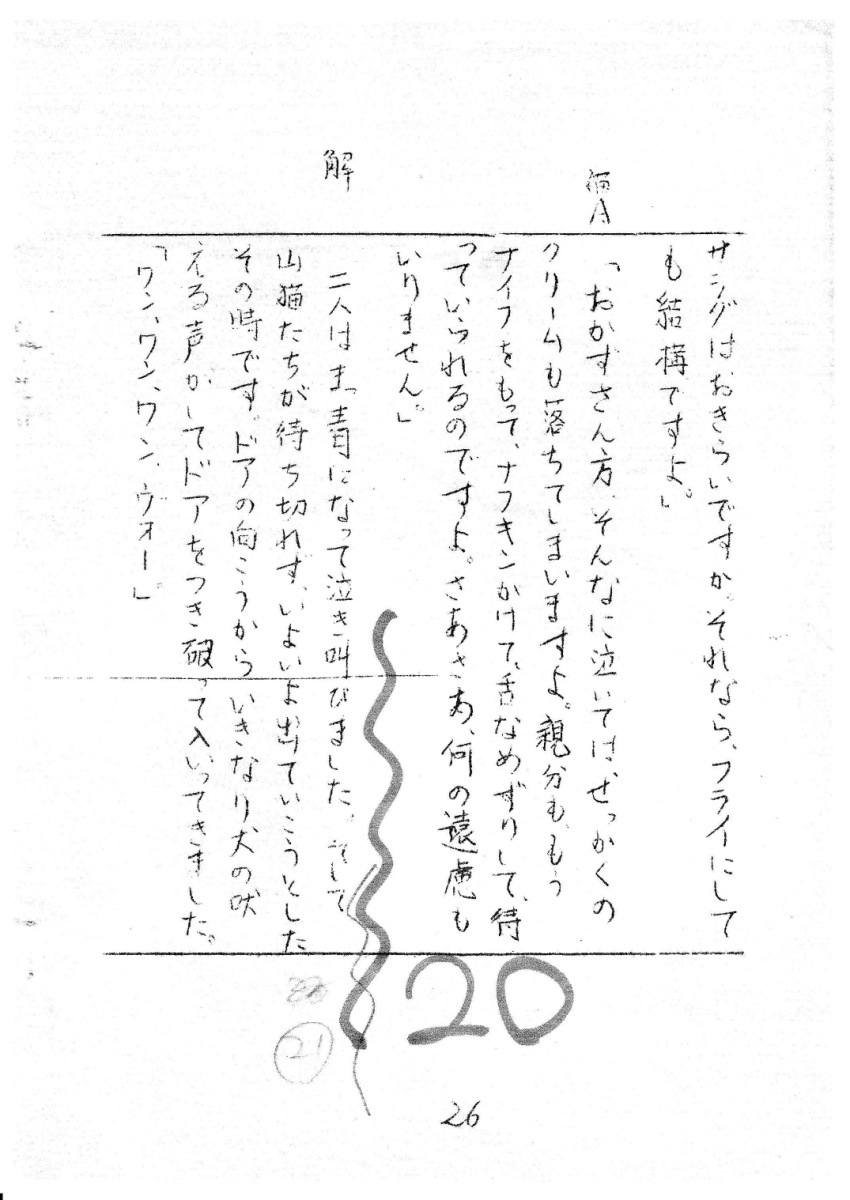 サラダはおきらいですか。それなら、フライにして
も結構ですよ。」
猫A
「おかずさん方、そんなに泣いては、せっかくの
クリームも落ちてしまいますよ。親分も、もう
ナイフをもって、ナフキンかけて、舌なめずりして、待
っていられるのですよ。さあさあ、何の遠慮も
いりません。」
解
二人はまっ青になって泣き叫びました。そして
山猫たちが待ち切れず、いよいよ出ていこうとした
その時です。ドアの向こうからいきなり犬の吠
える声がしてドアをつき破って入いってきました。
「ワン、ワン、ワン、ヴォー」。
20
21
26